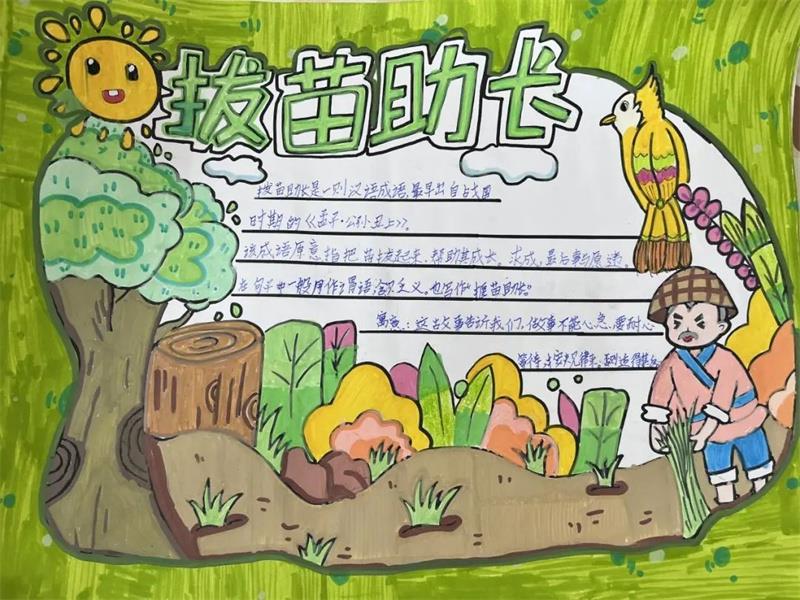 拔苗助长
拔苗助长是一则汉语成语,最早出自战国
时期的《孟子·公孙丑上》。
该成语原意指把苗拔起来,帮助其成长。求成,最后事与愿违。
在句子中一般用作谓语、含贬义。也写作"揠苗助长"
寓意:这出故事告诉我们,做事不能心急,要耐心
等待,